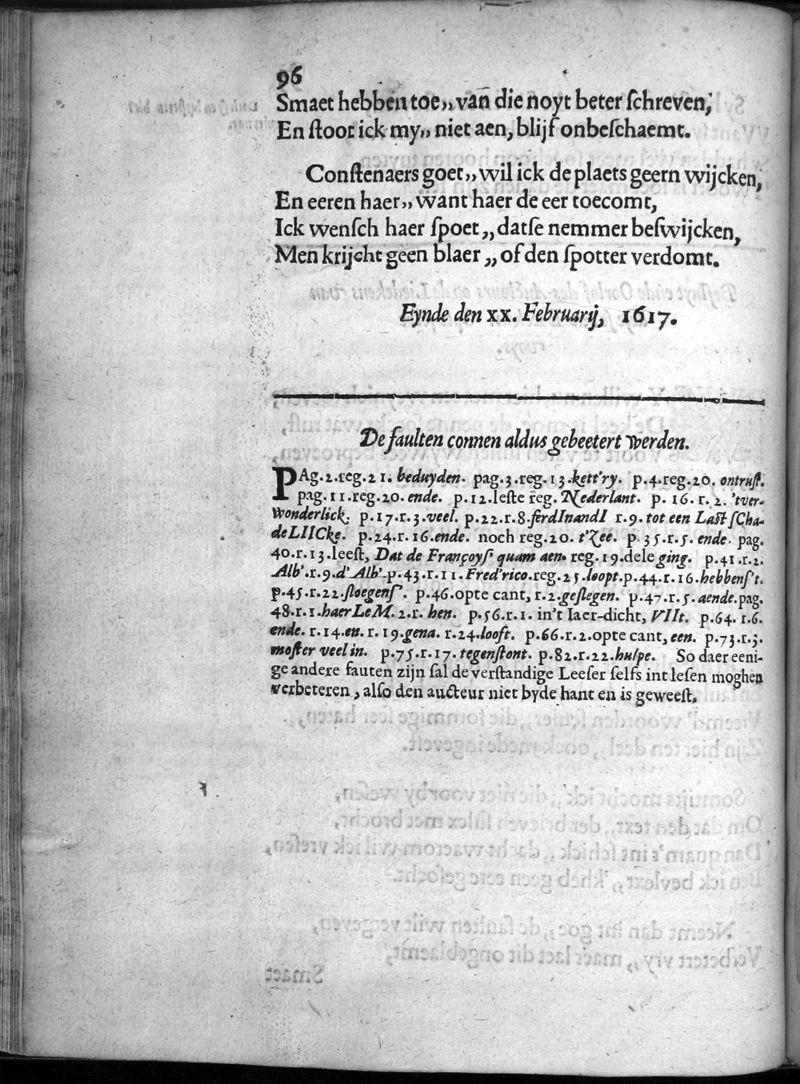 96
Smaet hebben toe„ van die noyt beter ſchreven,
En ſtoot ick my„ niet aen, blijf onbeſchaemt.
Conſtenaers goet„ wil ick de plaets geern wijcken,
En eeren haer„ want haer de eer toecomt,
Ick wenſch haer ſpoet„ datſe nemmer beſwijcken,
Men krijcht geen blaer„ of den ſpotter verdomt.
Eynde den XX. Februarij, 1617.
De faulten connen aldus gebeetert werden.
PAg.2.reg.21. beduyden. pag.3.reg.13.kett'ry. p.4.reg.20. ontruſt.
pag.11.reg.20. ende. p.12.leſte reg. Nederlant. p. 16. r. 2. 'tver-
wonderlick. p.17.r.3.veel. p.22.r.8.ferdInandI r.9. tot een Laſt ſCha-
deLIICke. p.24.r.16.ende. noch reg.20. t'Zee. p.35.r.5. ende. pag.
40.r.13.leeſt, Dat de Françoyſ quam aen. reg.19.dele ging. p.41.r.2.
Alb'.r.9.d'Alb'.p.43.r.11.Fred'rico.reg.25.loopt.p.44.r.16.hebbenſ't.
p.45.r.22.ſloegenſ'. p.46.opte cant, r.2.geſlegen. p.47.r.5.aende.pag.
48.r.1.haerLeM.2.r. hen. p.56.r.1. in't Iaer-dicht, VIIt. p.64. r.6.
ende. r.14.en. r.19.gena. r.24.looft. p.66.r.2.opte cant, een. p.73.r.3.
moſter veel in. p.75.r.17. tegenſtont. p.82.r.22.hulpe. So daer eeni-
ge andere fauten zijn ſal de verſtandige Leeſer ſelfs int leſen moghen
verbeteren, alſo den aucteur niet byde hant en is geweeſt.